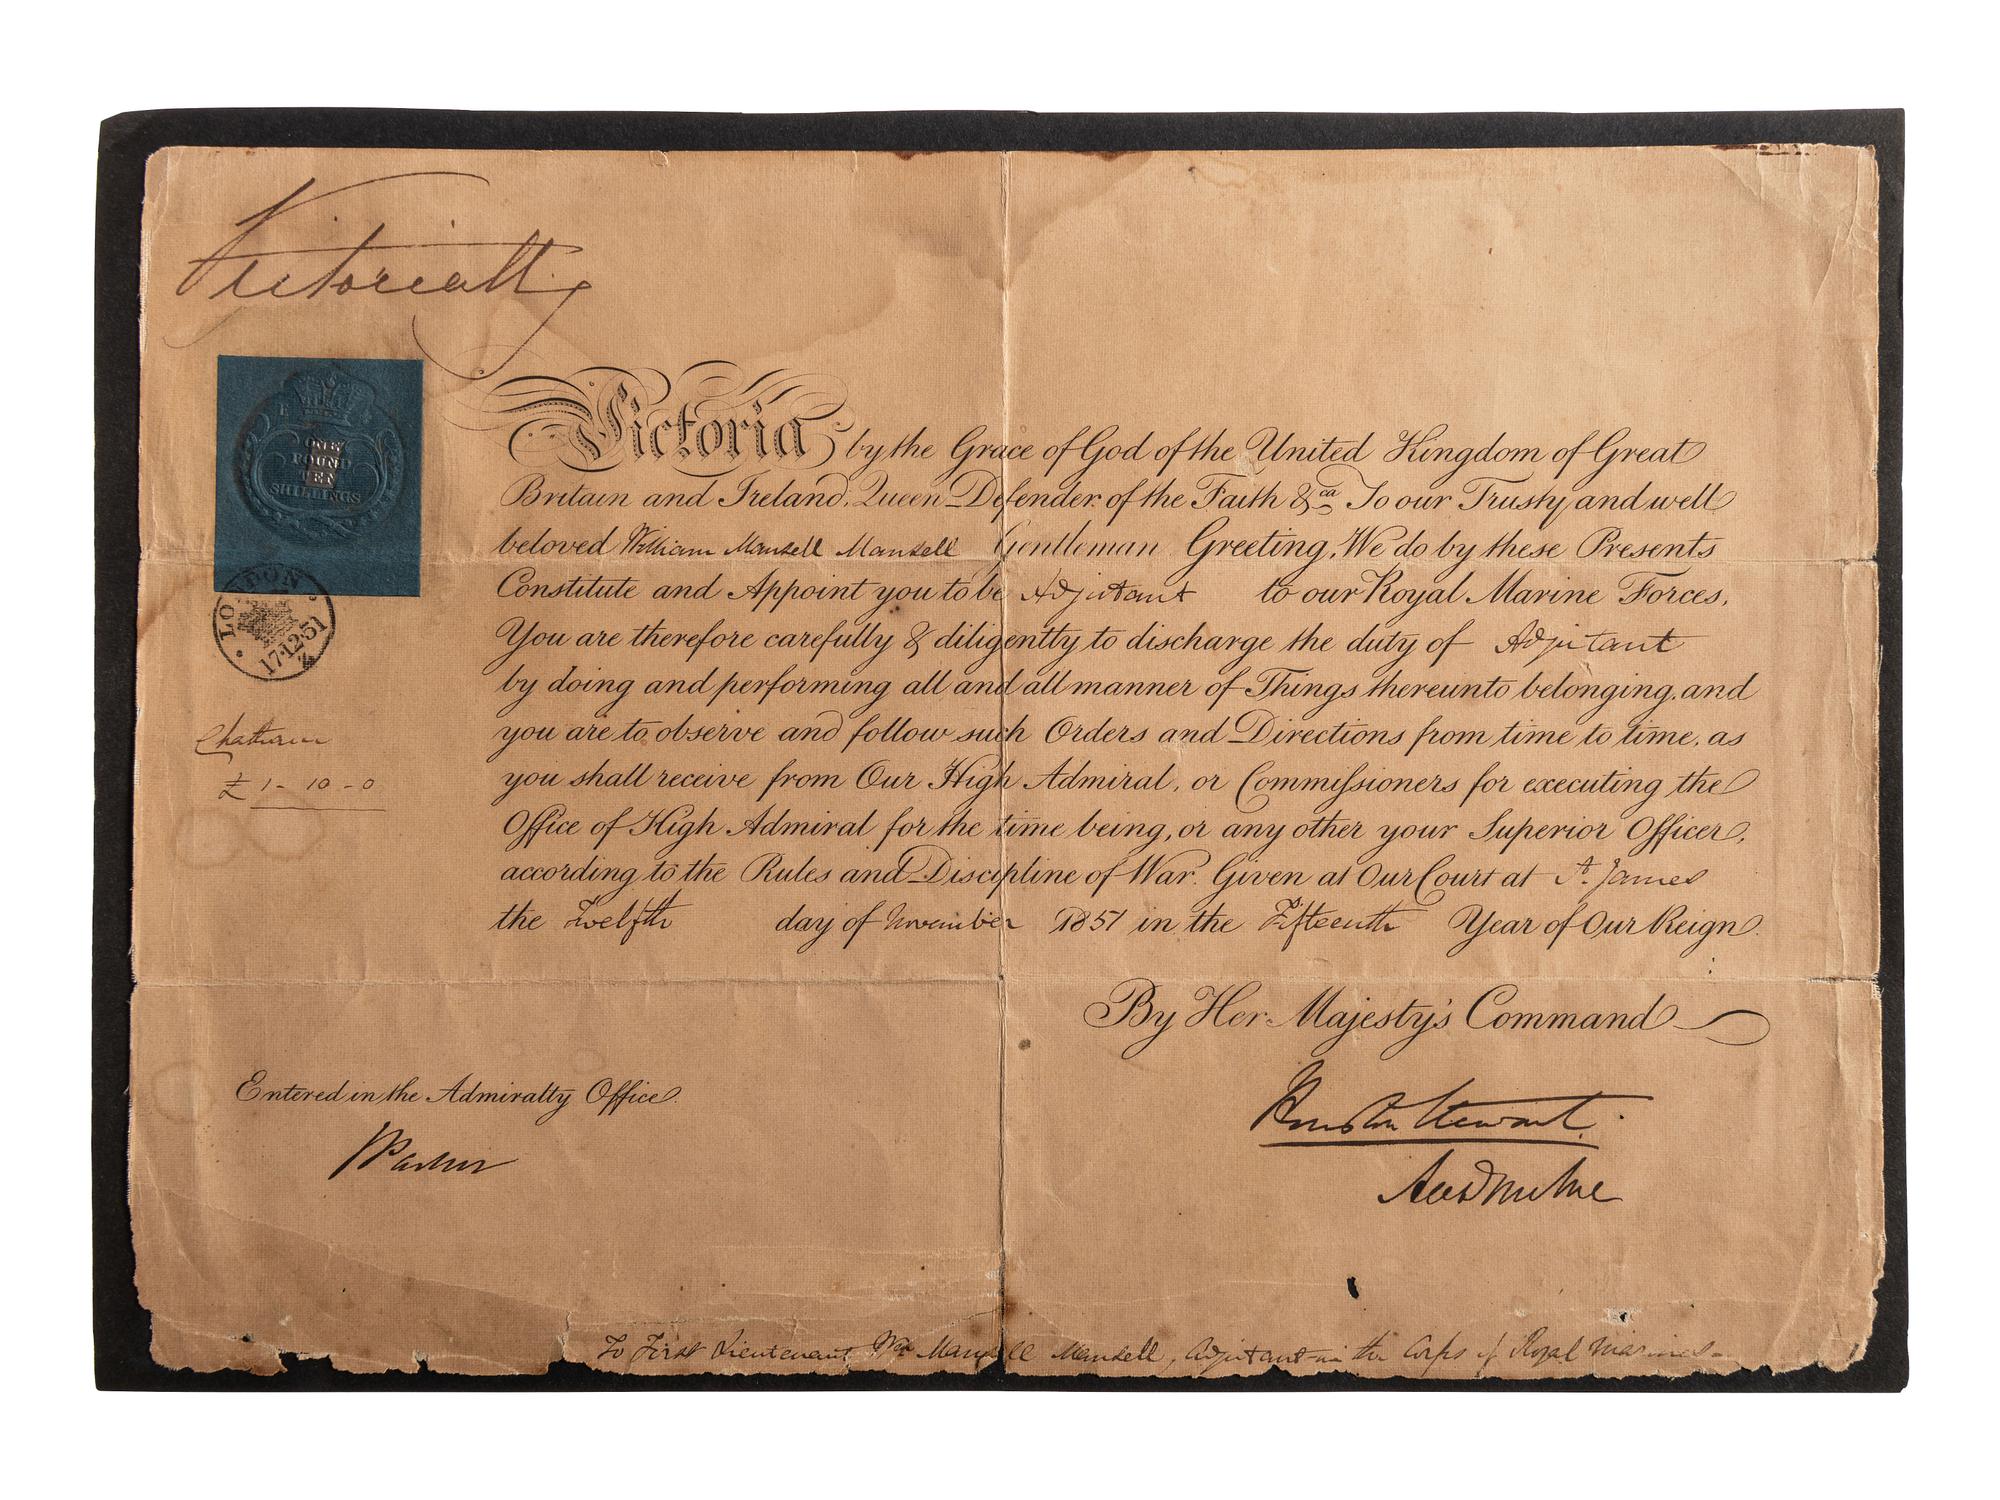 Victoria R
ONE
POUND
TEN
SHILLINGS
LONDON
17·12·51
Chatham
£ 1 - 10 - 0
Victoria by the Grace of God of the United Kingdom of Great
Britain and Ireland, Queen Defender of the Faith &ca To our Trusty and well
beloved William Mansell Mansell Gentleman Greeting, We do by these Presents
Constitute and Appoint you to be Adjutant to our Royal Marine Forces.
You are therefore carefully & diligently to discharge the duty of Adjutant
by doing and performing all and all manner of Things thereunto belonging, and
you are to observe and follow such Orders and Directions from time to time, as
you shall receive from Our High Admiral, or Commissioners for executing the
Office of High Admiral for the time being, or any other your Superior Officer,
according to the Rules and Discipline of War. Given at Our Court at St. James
the Twelfth day of November 1851 in the Fifteenth Year of Our Reign.
By Her Majesty's Command
Houston Stewart
Entered in the Admiralty Office.
Alex Milne
To First Lieutenant Wm Mansell Mansell, Adjutant in the Corps of Royal Marines.